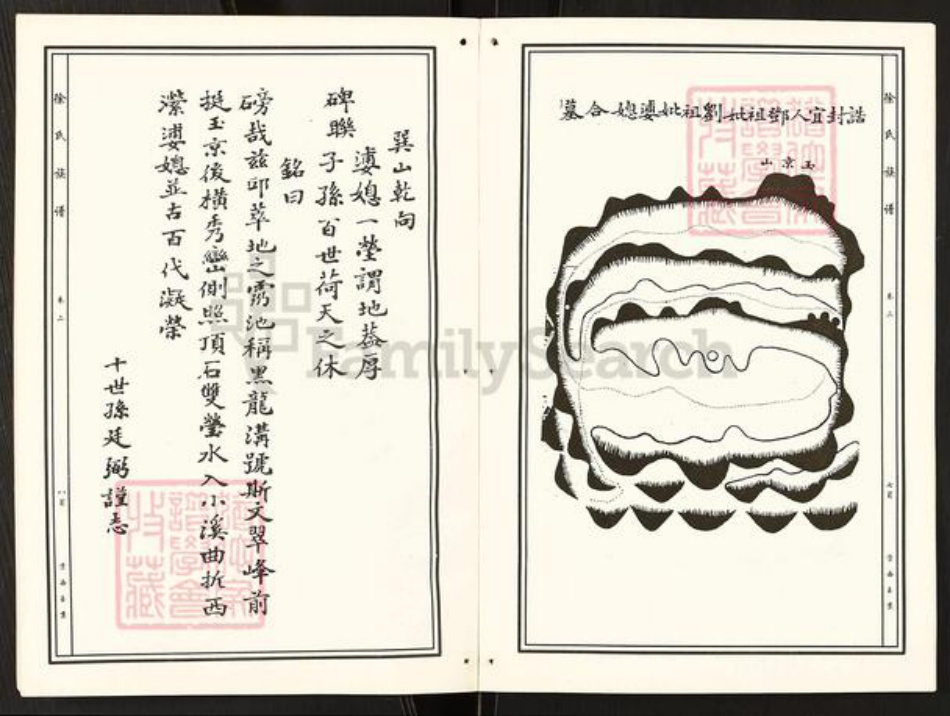 徐氏族譜
卷二
誥封宜人鄧祖妣劉祖妣婆媳合墓
玉京山
巽山乾向
碑聯
婆媳一塋謂地蓋厚
子孫百世荷天之休
銘曰
磅哉茲邱萃地之靈池稱黑龍溝號斯文翠峰前
挺玉京後橫秀巒側照頂石雙瑩水入小溪曲折西
瀠婆媳並古百代凝榮
十世孫廷弼謹志
徐氏族譜
卷二
FamilySearch